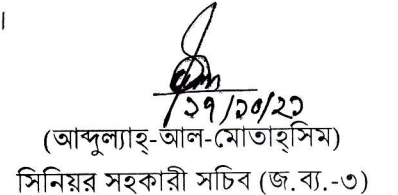 ।
২৭/১০/২১
(আব্দুল্যাহ্-আল-মোতাহ্সিম)
সিনিয়র সহকারী সচিব (জ.ব্য.-৩)